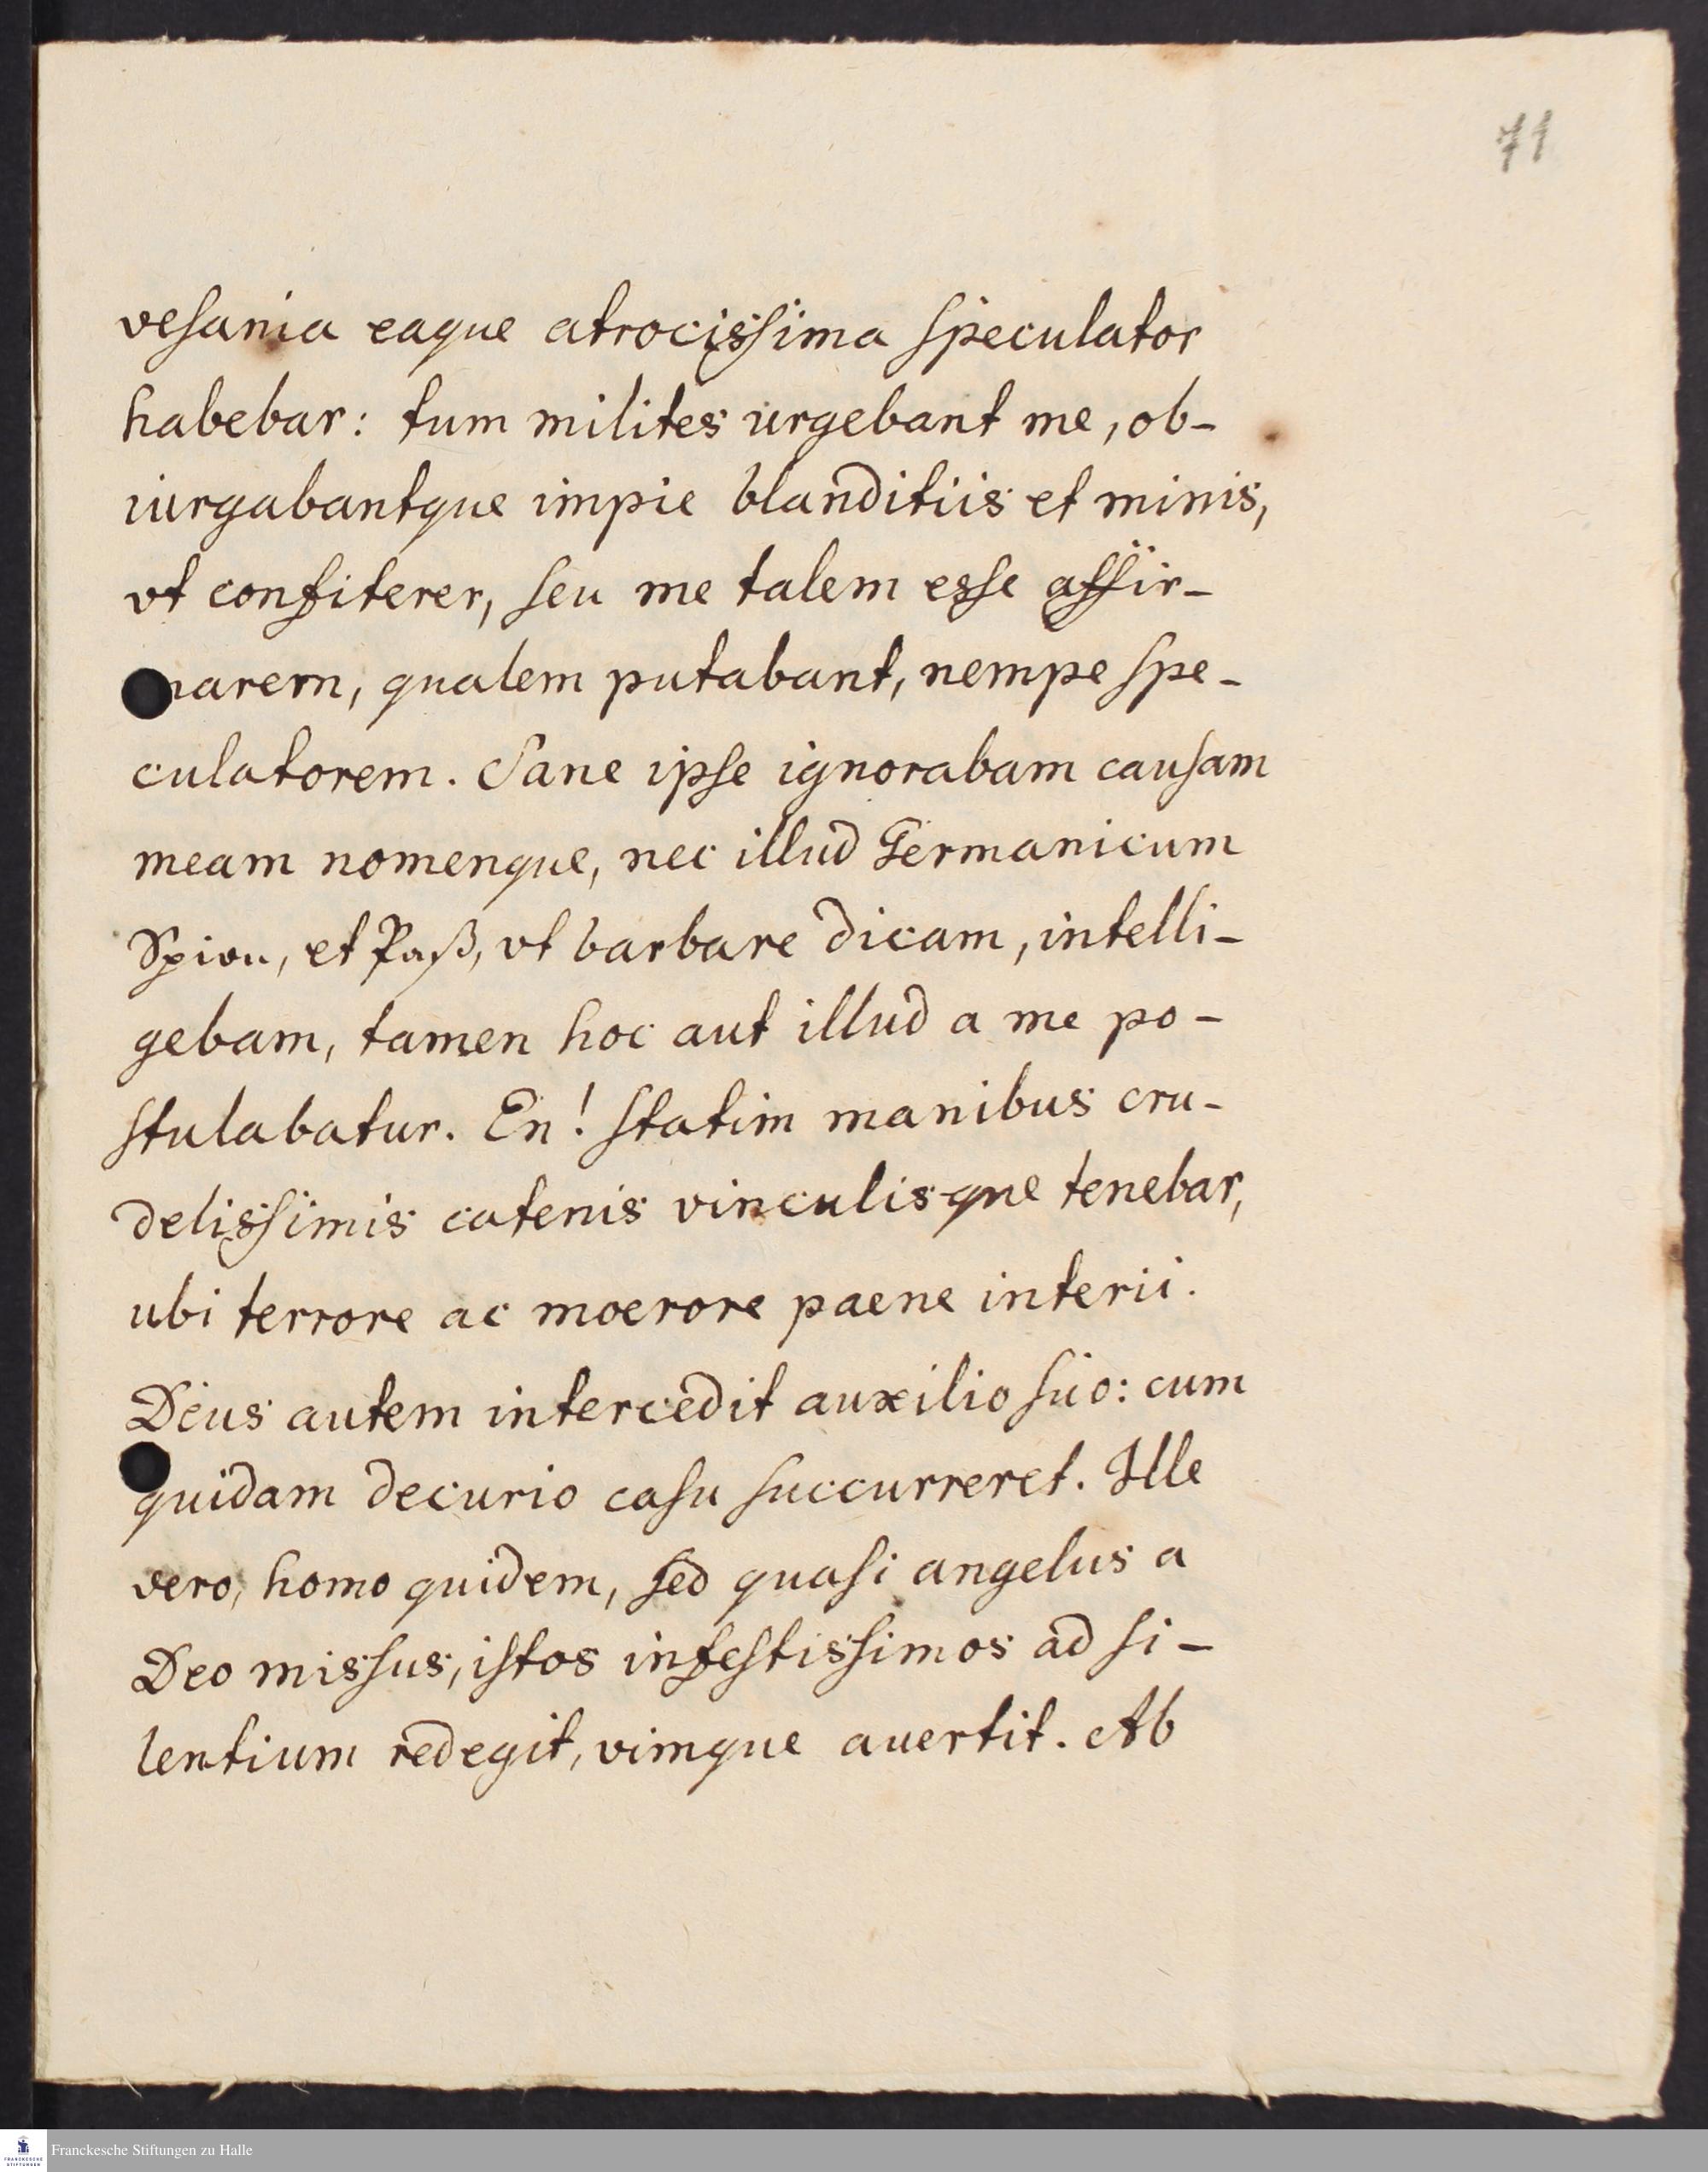 71
vesania eaque atrocissima speculator
habebar: tum milites urgebant me, ob-
iurgabantque impie blanditiis et minis,
vt confiterer, seu me talem esse affir-
marem, qualem putabant, nempe spe-
culatorem. Sane ipse ignorabam causam
meam nomenque, nec illud Germanicum
Spion, et Paß, vt barbare dicam, intelli-
gebam, tamen hoc aut illud a me po-
stulabatur. En! statim manibus cru-
delissimis catenis vinculisque tenebar,
ubi terrore ac moerore paene interii.
Deus autem intercedit auxilio suo: cum
quidam decurio casu succurreret. Ille
vero, homo quidem, sed quasi angelus a
Deo missus, istos infestissimos ad si-
lentium redegit, vimque auertit. Ab
Franckesche Stiftungen zu Halle
FRANCKESCHE
STIFTUNGEN